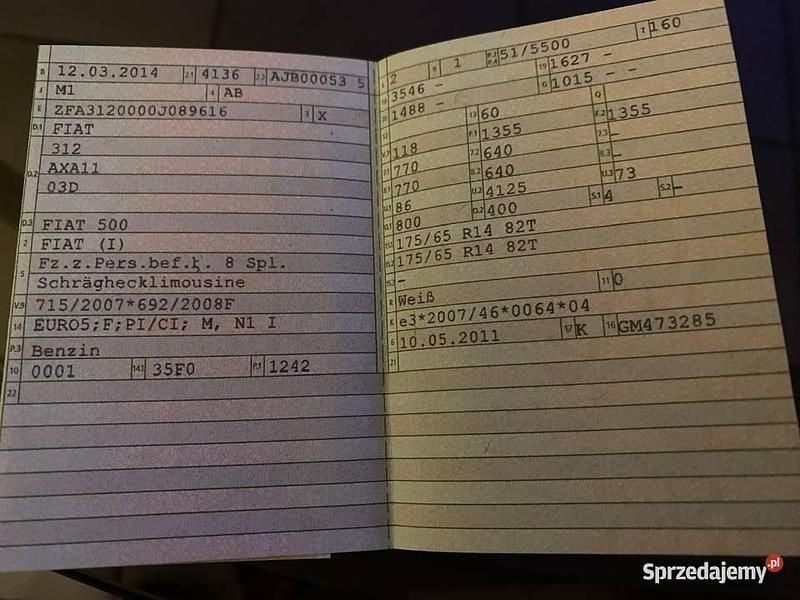 B 12.03.2014 2.1 4136 2.2 AJB00053 5
J M1 4 AB
E ZFA3120000J089616 3 X
D.1 FIAT
312
D.2 AXA11
03D
D.3 FIAT 500
2 FIAT (I)
5 Fz.z.Pers.bef.b. 8 Spl.
Schräghecklimousine
V.9 715/2007*692/2008F
14 EURO5;F;PI/CI; M, N1 I
P.3 Benzin
10 0001 14.1 35F0 P.1 1242
22
L 2 9 1 P.2 P.4 51/5500 T 160
18 3546 - 19 1627 -
20 1488 - G 1015 - -
12 13 60 Q
V.7 118 F.1 1355 F.2 1355
7.1 770 7.2 640 7.3 -
8.1 770 8.2 640 8.3 -
U.1 86 U.2 4125 U.3 73
O.1 800 O.2 400 S.1 4 S.2 -
15.1 175/65 R14 82T
15.2 175/65 R14 82T
15.3 -
R Weiß 11 0
K e3*2007/46*0064*04
6 10.05.2011 17 K 16 GM473285
21
Sprzedajemy.pl